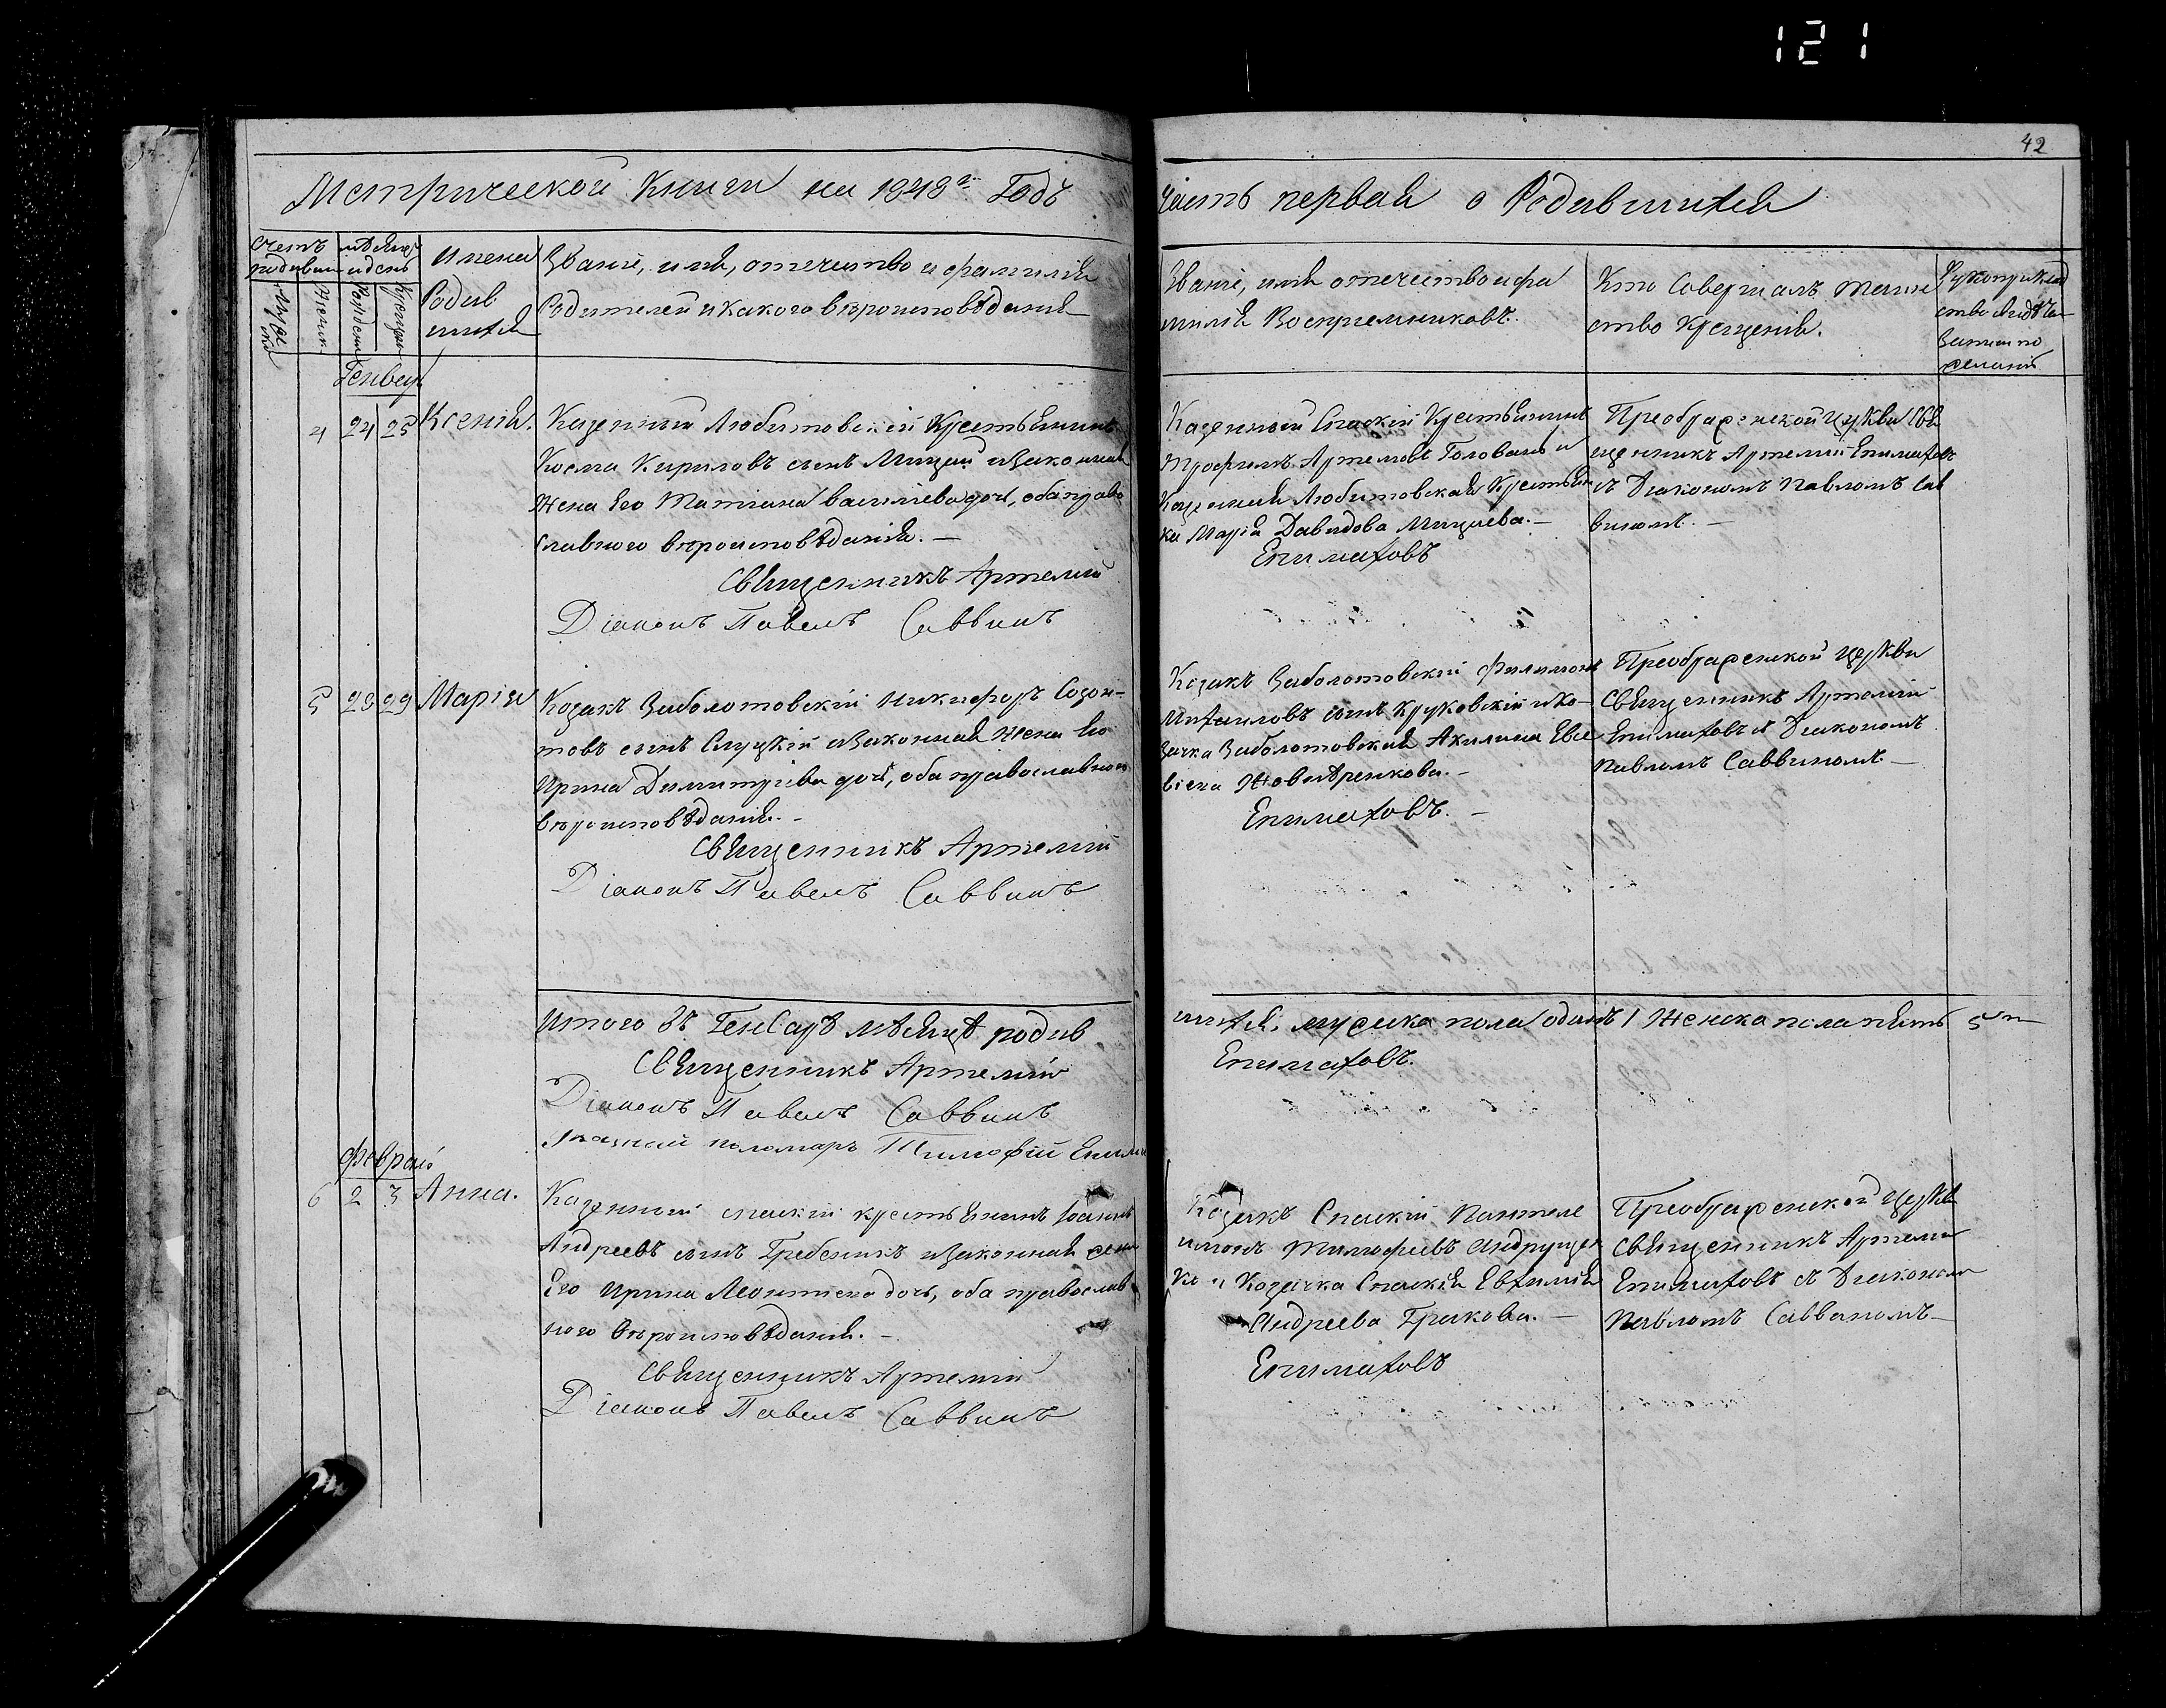 121
42
Метрической Книги на 1848й Годъ
Часть первая о Родившихся
Счетъ родивши
мѣсяцъ и день
Имена Родив шихся
Званіе, имя, отечество и фамилія
Родителей и какого вѣроисповѣданія
Званіе, имя отечество и фа
милія Воспріемниковъ.
Кто Совершалъ таин
ство Крещенія.
Рукоприклад
ство
записи по
желанію
Мужска
Женск.
Рожденія
Крещенія
Генварь
4 24 25 Ксенія.
Казенный Любитовскій Крестьянинъ
Косма Кириловъ сынъ Мицай и законная
жена Его Татіана Василіева дочь, оба право
славного вѣроисповѣданія. —
Священникъ Артемій
Діаконъ Павелъ Саввинъ
Казенный Спаскій Крестьянинъ
Трофимъ Артемовъ Головань и
Казенная Любитовская Крестьян
ка Марія Давидова Мицаева. —
Епимаховъ
Преображенской Церкви Свя
щенникъ Артемій Епимаховъ
съ Діакономъ Павломъ Сав
виномъ. —
5 28 29 Марія
Козакъ Заболотовскій Никифоръ Созон-
товъ сынъ Слуцкій и законная жена Его
Ирина Димитріева дочь, оба православного
вѣроисповѣданія. —
Священникъ Артемій
Діаконъ Павелъ Саввинъ
Козакъ Заболотовскій Филимонъ
Михаиловъ сынъ Круковскій и Ко-
зачка Заболотовская Акилина Евсе
віева —
Епимаховъ. —
Преображенской Церкви
Священникъ Артемій
Епимаховъ съ Діакономъ
Павломъ Саввиномъ. —
Итого въ Генварѣ мѣсяцѣ родив
шихся, мужска пола одинъ 1 Женска пола пять 5
Священникъ Артемій
Епимаховъ.
Діаконъ Павелъ Саввинъ
пономарь Тимофій
Февраль
6 2 3 Анна.
Казенный спаскій крестьянинъ Іоаннъ
Андреевъ сынъ Гребеникъ и законная жена
Его Ирина Леонтіева дочь, оба православ
ного вѣроисповѣданія. —
Священникъ Артемій
Діаконъ Павелъ Саввинъ
Козакъ Спаскій Пантеле
имонъ Тимофеевъ Андрущен
ко и Козачка Спаскія Евфимія
Андреева Гракова. —
Епимаховъ
Преображенской Церкви
Священникъ Артемій
Епимаховъ съ Діакономъ
Павломъ Саввиномъ —